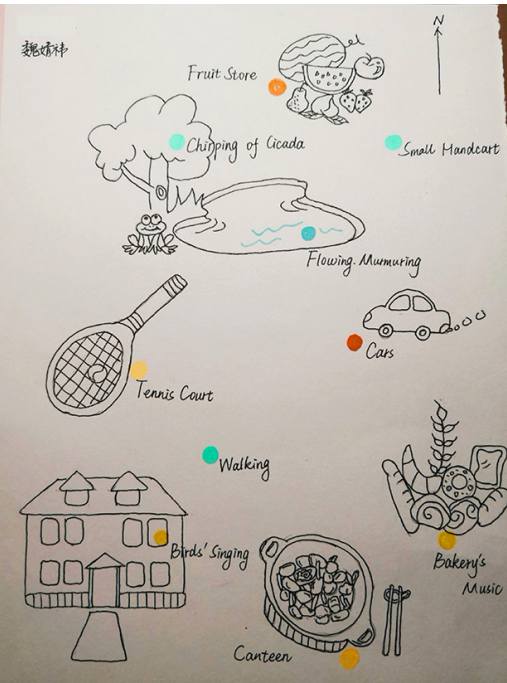 N
魏婧祎
Fruit Store
Chirping of Cicada
Small Handcart
Flowing. Murmuring
Cars
Tennis Court
Walking
Birds' Singing
Bakery's
Music
Canteen